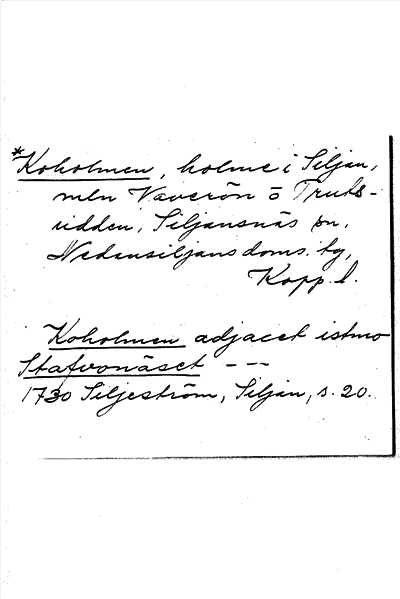 *Koholmen, holme i Siljan,
mln Vaverön o Truts-
udden, Siljansnäs sn,
Nedansiljans doms. tg,
Kopp. l.
Koholmen adjacet istmo
Stafvonäset ---
1730 Siljeström, Siljan, s. 20.